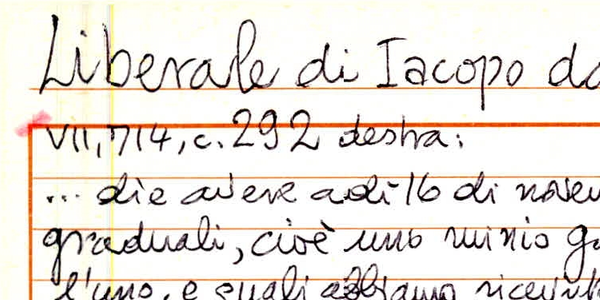 Liberale di Iacopo da
VII, 714, c. 292 destra:
... die avere adì 16 di novem
graduali, cioè uno minio g
l'uno, e quali abbiamo